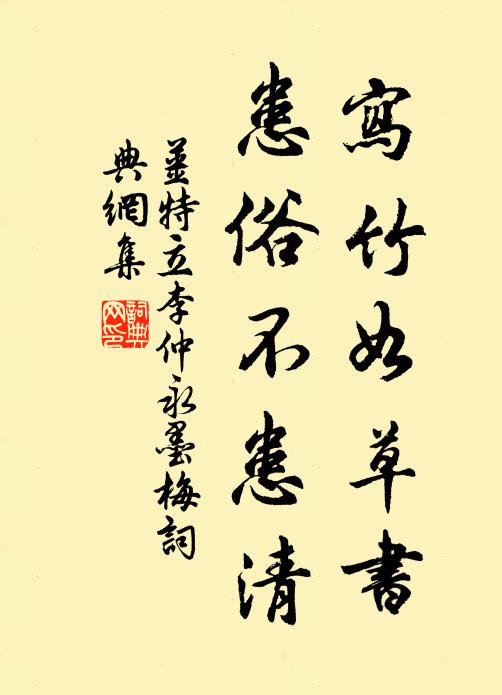 寫竹如草書
患俗不患清
姜特立李仲永墨梅詞
典網集
詞典
网印